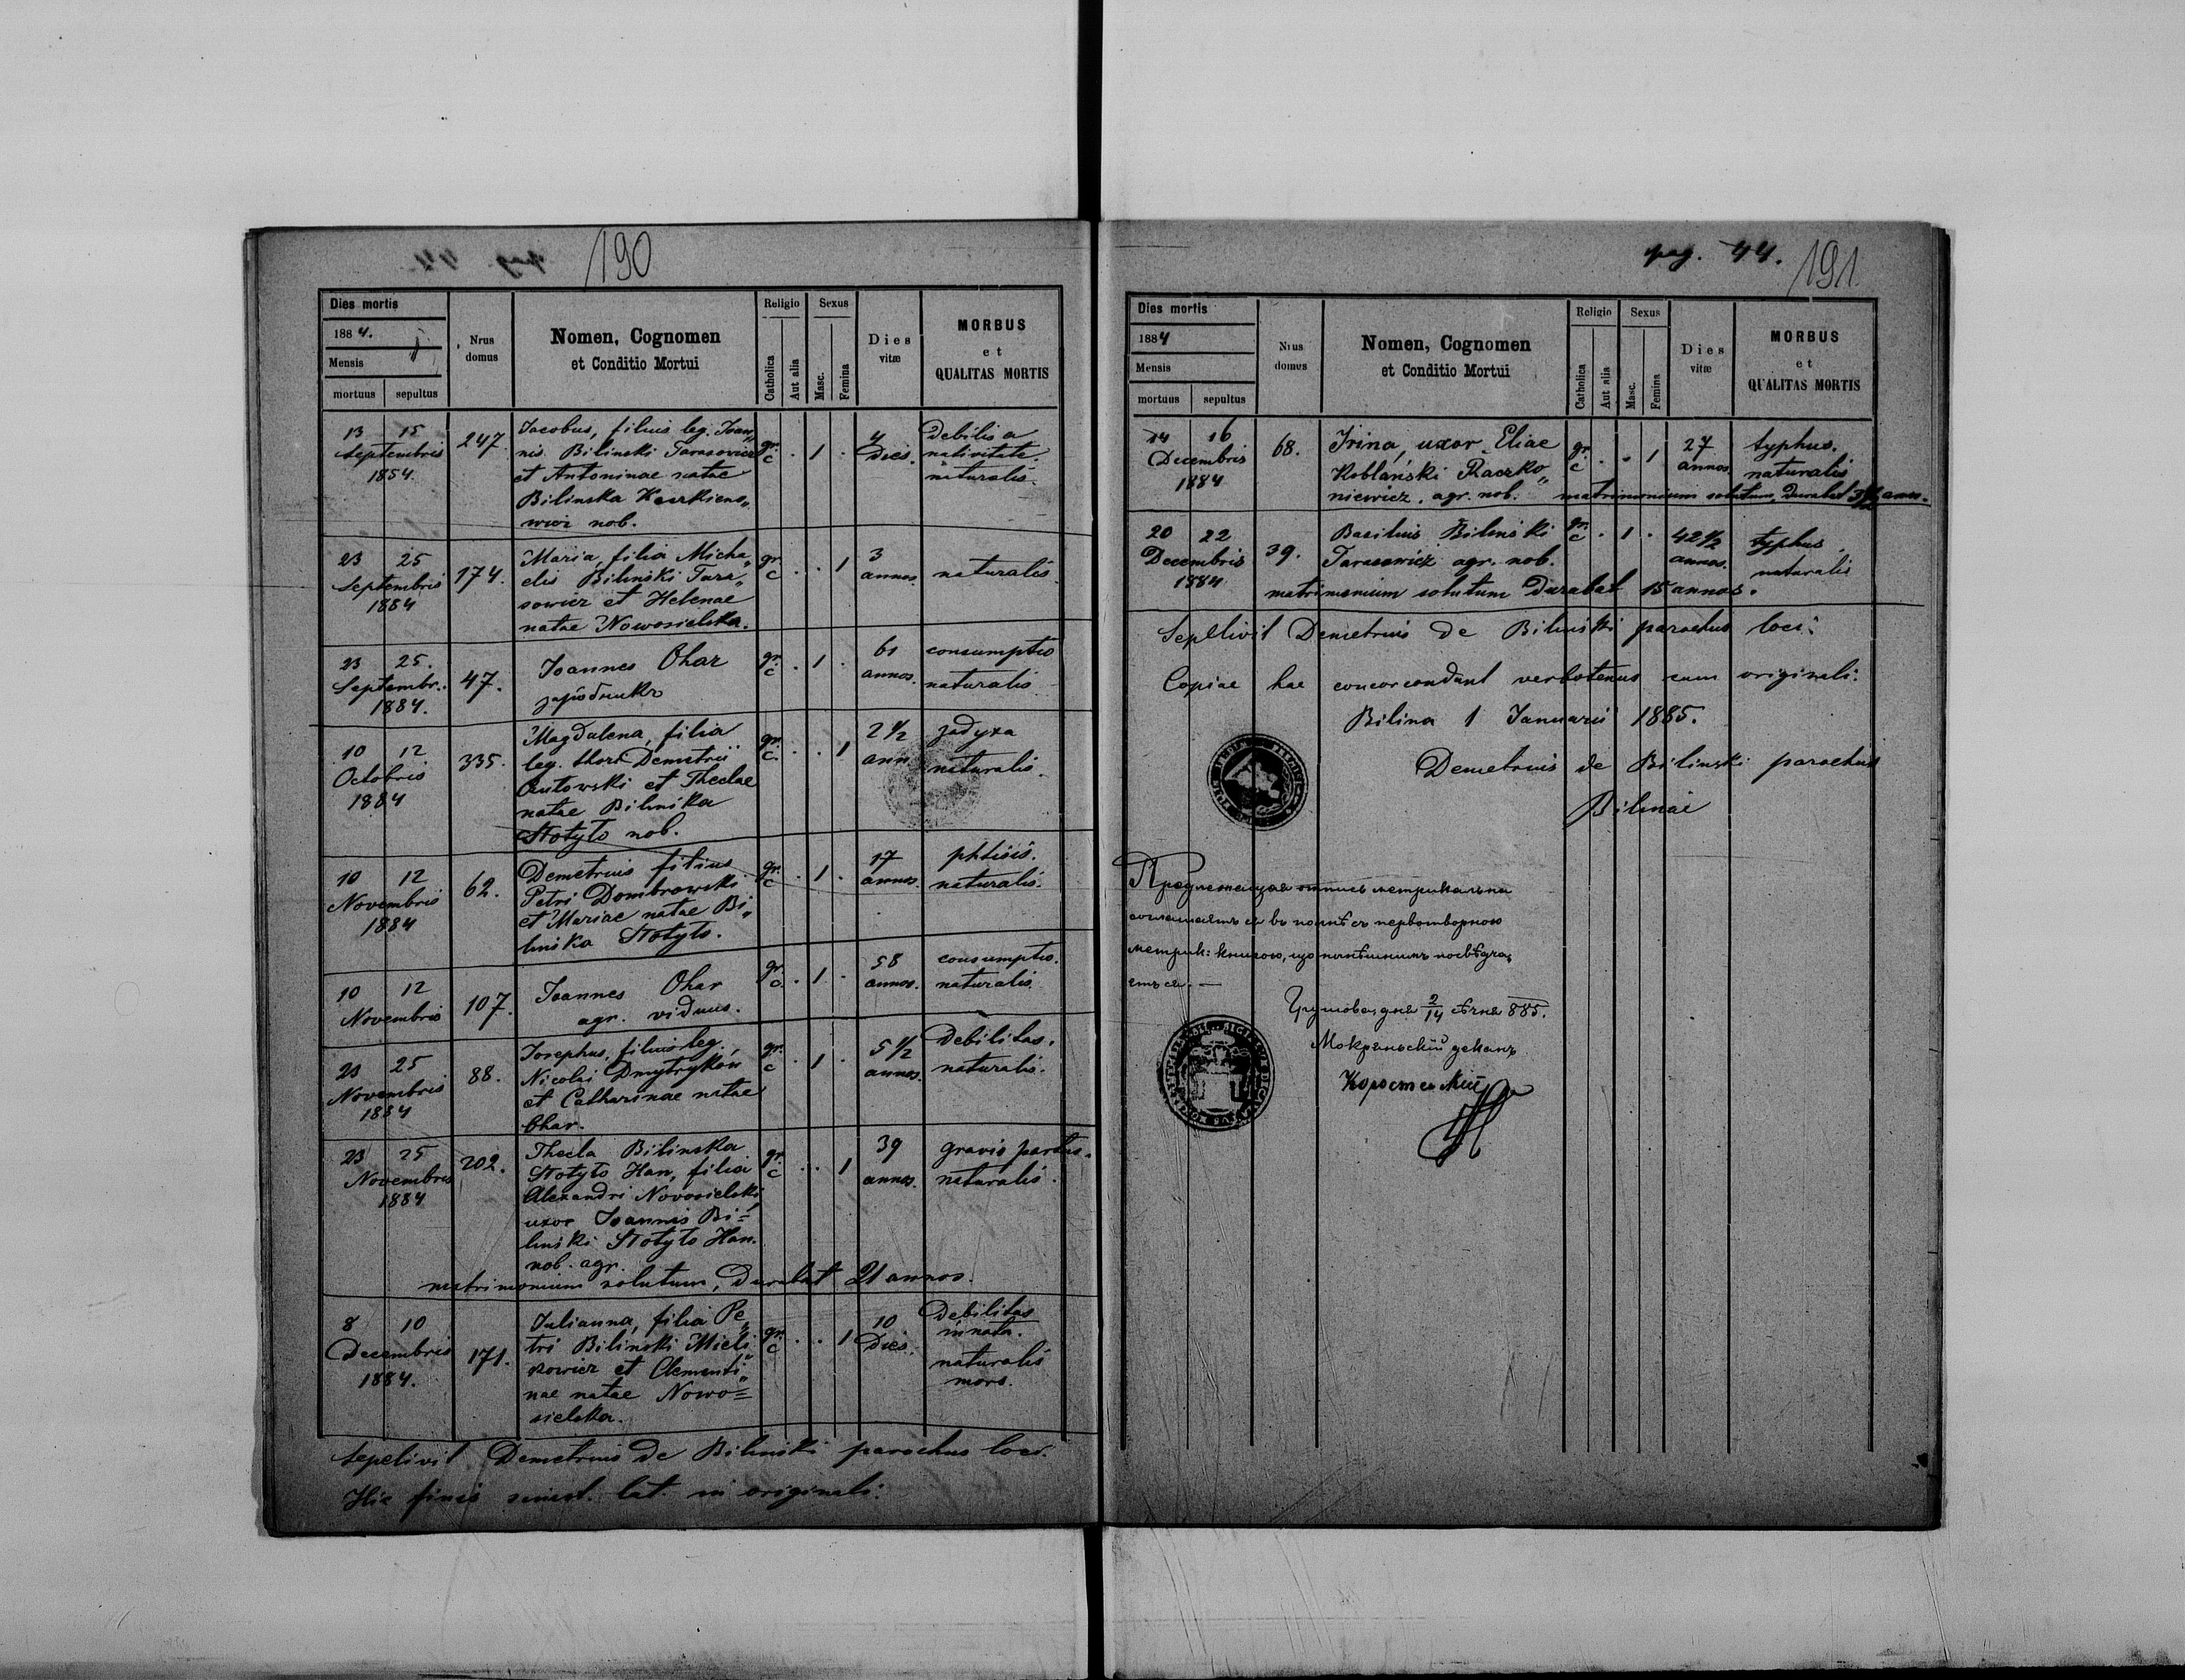 190
Dies mortis
1884.
Mensis
mortuus sepultus
Nrus domus
Nomen, Cognomen
et Conditio Mortui
Religio
Catholica
Aut alia
Sexus
Masc.
Femina
Dies vitæ
MORBUS
et
QUALITAS MORTIS
13 15 Septembris 1854. 247. gr. c . 1 . 4 Dies.
Jacobus, filius leg. Joan„
nis Bilinski Tarasowicz
et Antoninae natae
Bilinska
wicz nob.
Debilis a
nativitate.
naturalis.
23 25 Septembris 1884 174. gr. c . . 1 3 annos. naturalis
Maria, filia Micha„
elis Bilinski Tara„
sowicz et Helenae
natae Nowosielska.
23 25. Septembr. 1884. 47. gr. c . 1 . 61 annos.
Joannes Ohar
зарôбникъ
consumptio
naturalis
10 12 Octobris 1884 335. gr. c. . . 1 2 1/2 ann
Magdalena, filia
leg. thori Demetrii
Kutowski et Theclae
natae Bilinska
Stotyło nob.
задуха
naturalis.
10 12 Novembris 1884 62. gr. c . 1 . 17 annos.
Demetrius filius
Petri Dombrowski
et Mariae natae Bi„
linska Stotyło.
phtisis.
naturalis.
10 12 Novembris 107. gr. c. . 1 . 58 annos.
Joannes Ohar
agr. viduus.
consumptio.
naturalis.
23 25 Novembris 1884 88. gr. c . 1 . 5 1/2 annos.
Josephus, filius leg.
Nicolai Dmytryków
et Catharinae natae
Ohar.
Debilitas.
naturalis.
23 25 Novembris 1884 202. gr. c . . 1 39 annos.
Thecla Bilinska
Stotyło Han, filia
Alexandri Novosielski
uxor Joannis Bi=
linski Stotyło Han.
nob. agr.
gravis partus.
naturalis.
matrimonium solutum, Durabat 21 annos.
8 10 Decembris 1884. 171. gr. c . . 1 10 Dies.
Julianna, filia Pe„
tri Bilinski Mieli„
kowicz et Clementi„
nae natae Nowo=
sielska.
Debilitas
innata.
naturalis
mors.
Sepelivit Demetrius de Bilinski parochus loci.
Hic finis semest. lat. in originali.
pag. 44.
191.
Dies mortis
1884
Mensis
mortuus sepultus
Nrus domus
Nomen, Cognomen
et Conditio Mortui
Religio
Catholica
Aut alia
Sexus
Masc.
Femina
Dies vitæ
MORBUS
et
QUALITAS MORTIS
14 16 Decembris 1884 68. gr. c . . 1 27 annos
Irina, uxor Eliae
Koblański Raczko„
niewicz. agr. nob.
typhus.
naturalis
matrimonium solutum, Durabat annos.
20 22 Decembris 1884 39. gr. c . 1 . 42 1/2 annos.
Basilius Bilinski
Tarasowicz agr. nob.
typhus.
naturalis
matrimonium solutum Durabat 15 annos.
Sepelivit Demetrius de Bilinski parochus loci.
Copiae hae concorcondant verbotenus cum originali.
Bilina 1 Januarii 1885.
Demetrius de Bilinski parochus
Bilinae
Предлежащая отпись метрикальна
соглашаетъ ся въ полнѣ съ первотворною
метрик: книгою, що нинѣшнимъ посвѣдча„
етъ ся. —
дня 2/14 сѣчня 885.
Мокрянскій деканъ